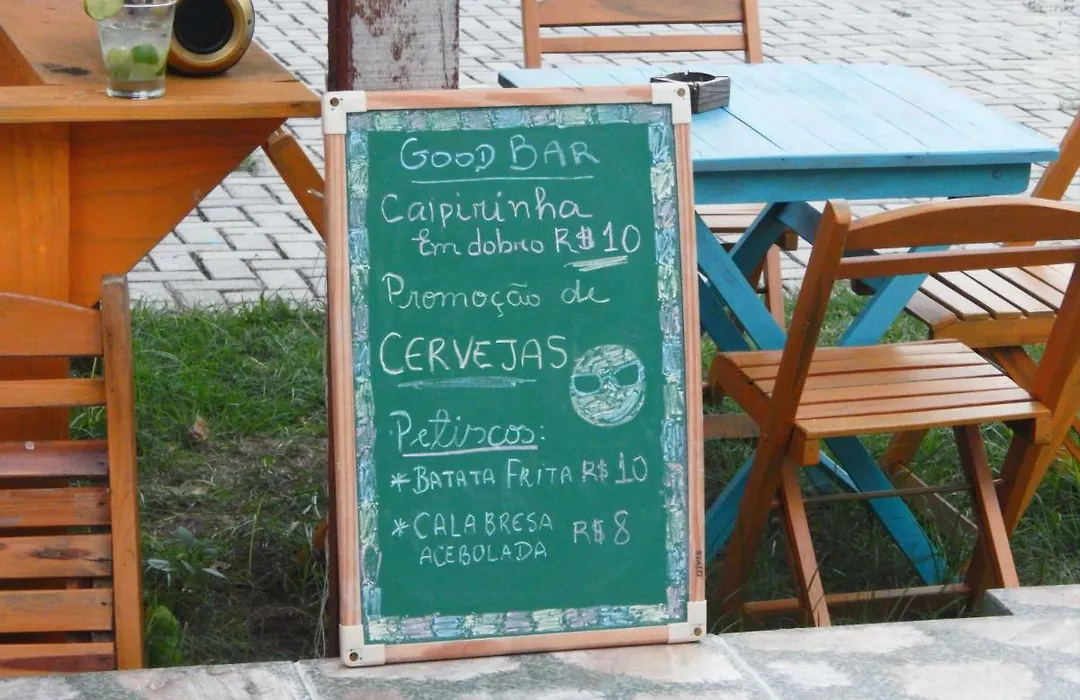 GOOD BAR
Caipirinha
Em dobro R$ 10
Promoção de
CERVEJAS
Petiscos:
* BATATA FRITA R$ 10
* CALABRESA R$ 8
ACEBOLADA